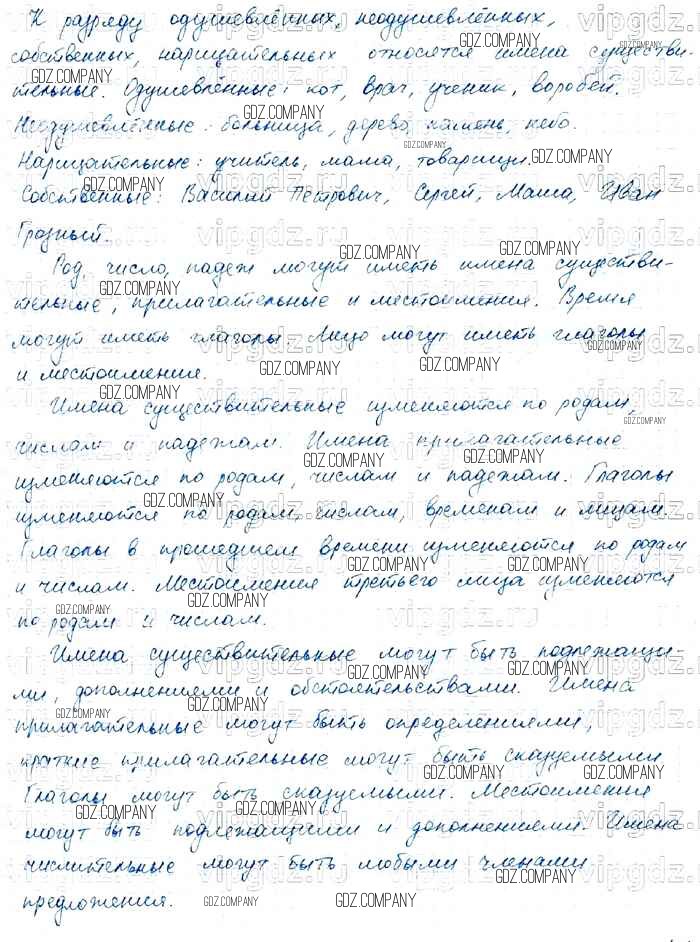 К разряду одушевлённых, неодушевлённых,
собственных, нарицательных относятся имена существи-
тельные. Одушевлённые: кот, врач, ученик, воробей.
Неодушевлённые: больница, дерево, камень, небо.
Нарицательные: учитель, мама, товарищи.
Собственные: Василий Петрович, Сергей, Маша, Иван
Грозный.
Род, число, падеж могут иметь имена существи-
тельные, прилагательные и местоимения. Время
могут иметь глаголы. Лицо могут иметь глаголы
и местоимение.
Имена существительные изменяются по родам,
числам и падежам. Имена прилагательные
изменяются по родам, числам и падежам. Глаголы
изменяются по родам, числам, временам и лицам.
Глаголы в прошедшем времени изменяются по родам
и числам. Местоимения третьего лица изменяются
по родам и числам.
Имена существительные могут быть подлежащи-
ми, дополнениями и обстоятельствами. Имена
прилагательные могут быть определениями,
краткие прилагательные могут быть сказуемыми
Глаголы могут быть сказуемыми. Местоимения
могут быть подлежащими и дополнениями. Имена
числительные могут быть любыми членами
предложения.